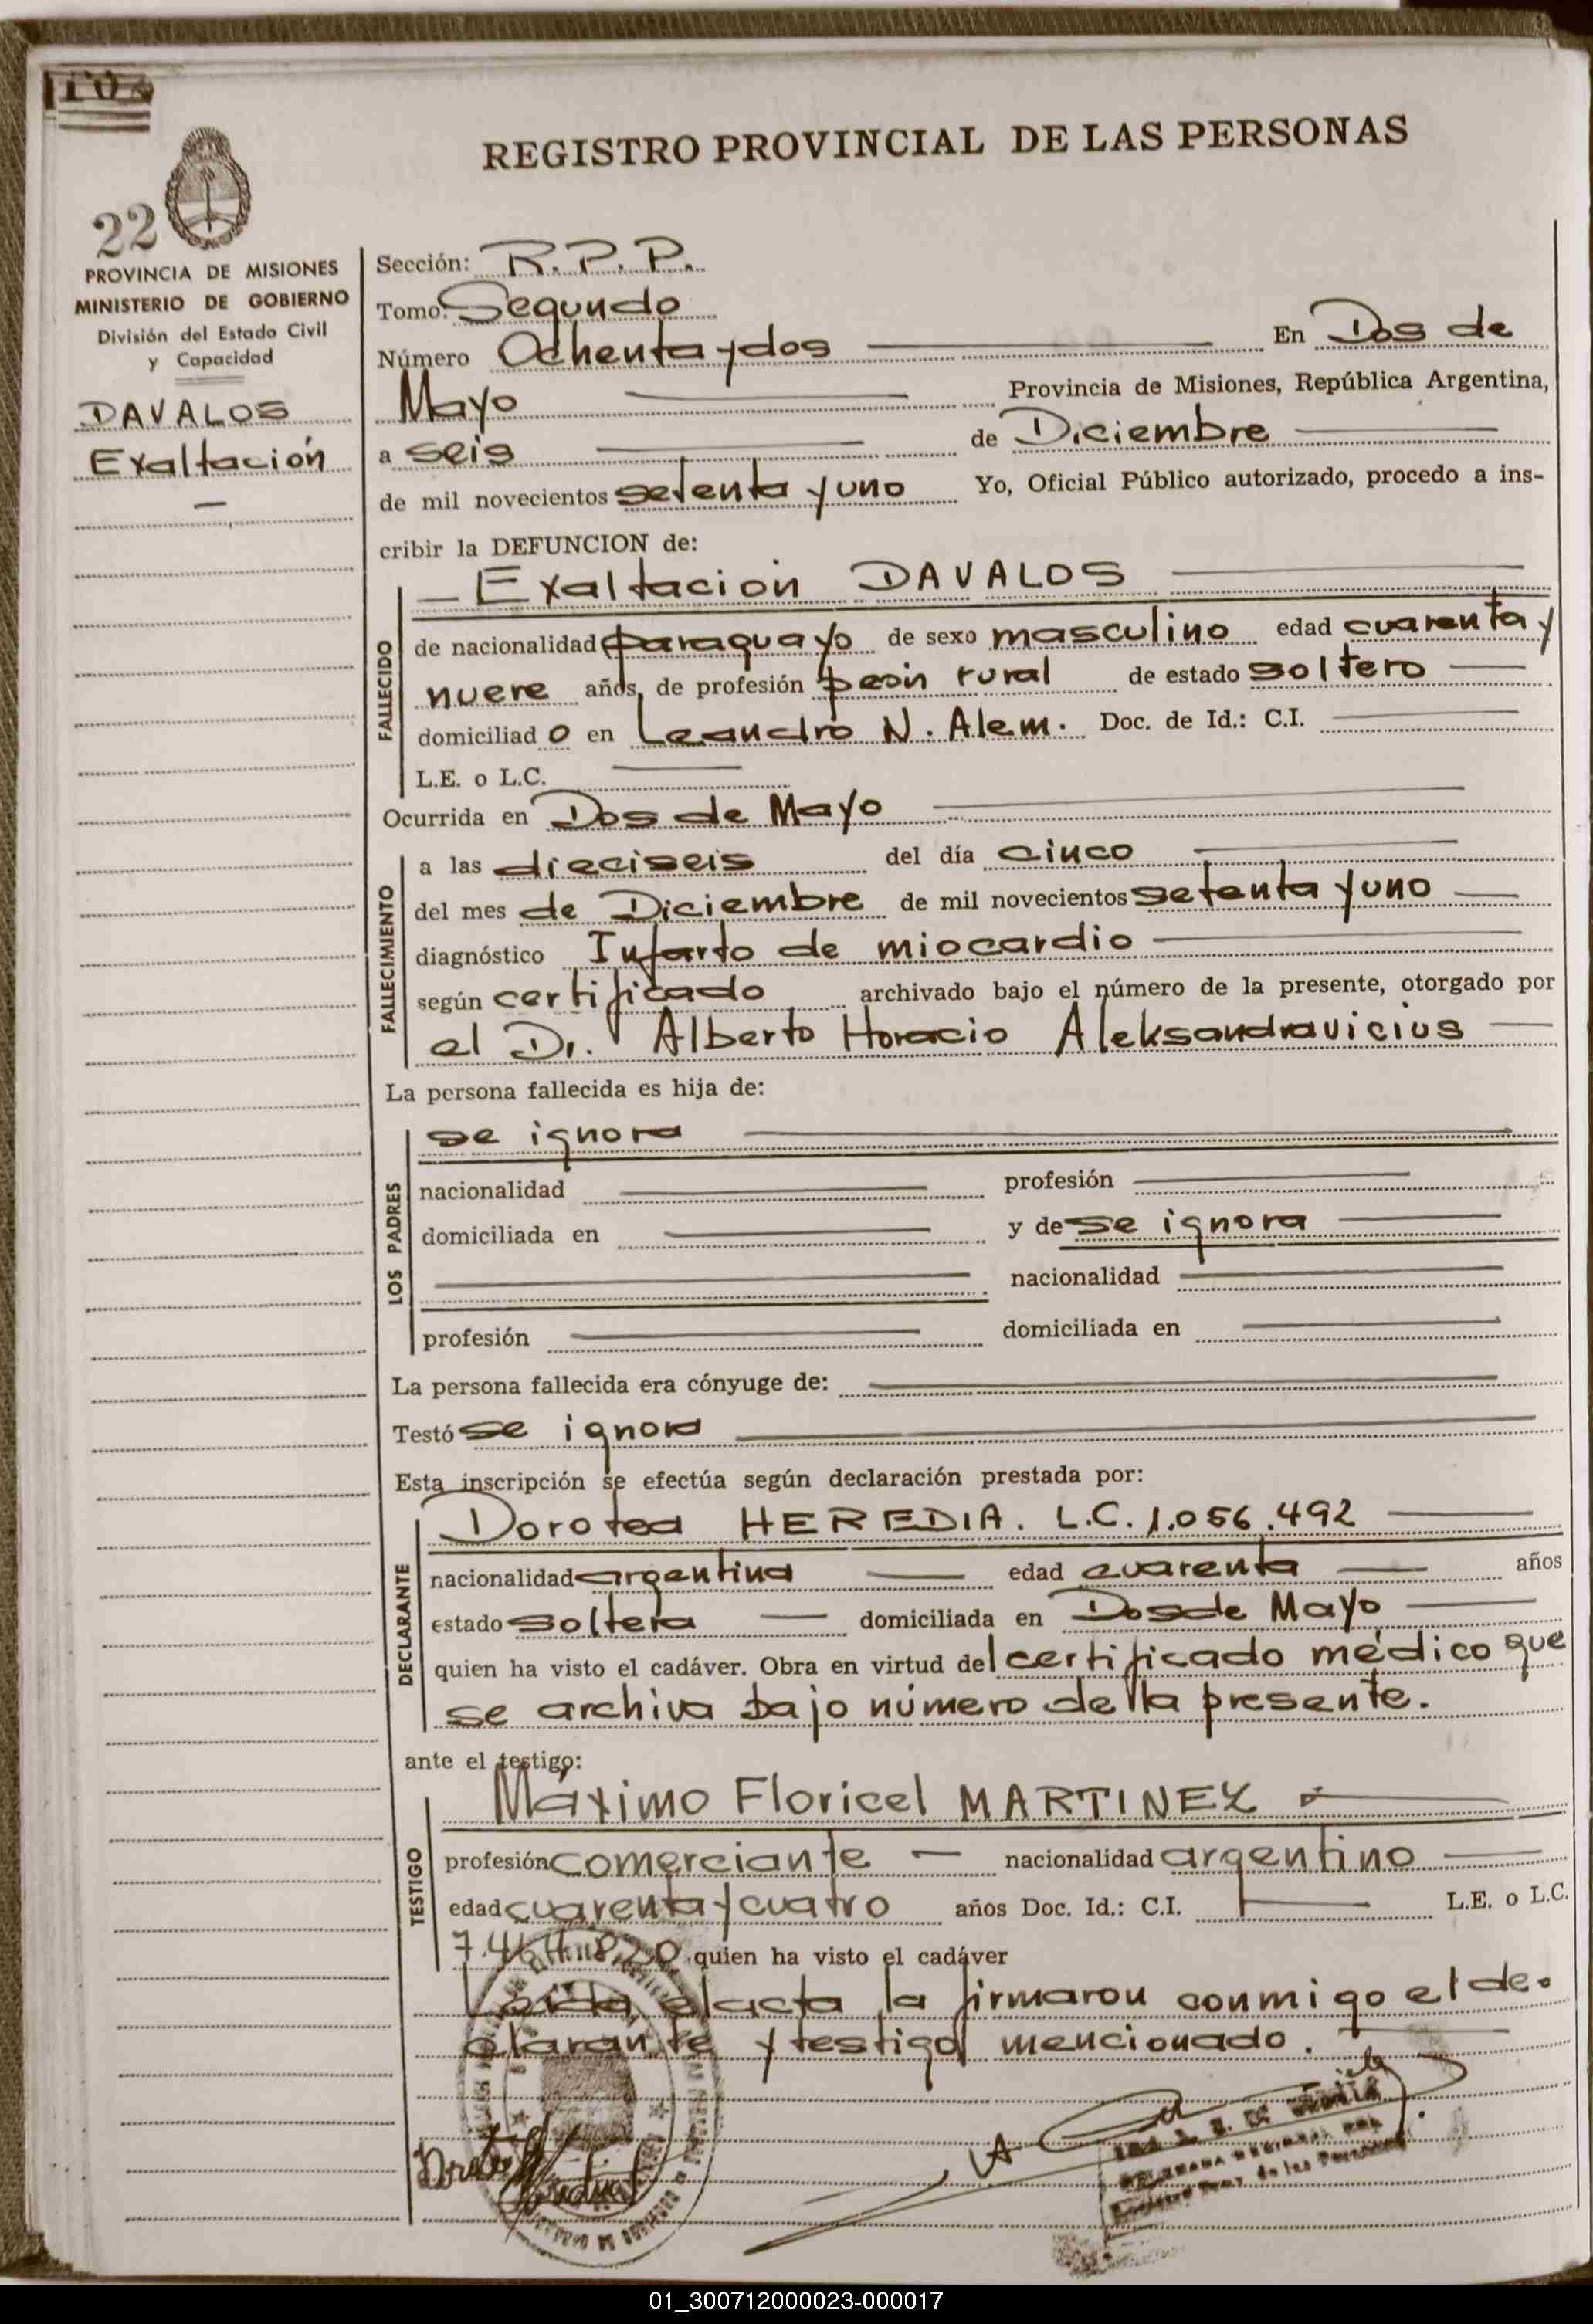 REGISTRO PROVINCIAL DE LAS PERSONAS
22
PROVINCIA DE MISIONES
MINISTERIO DE GOBIERNO
División del Estado Civil
y Capacidad
DAVALOS
Exaltación
Sección: R.P.P.
Tomo: Segundo
Número Ochenta y dos En Dos de
Mayo Provincia de Misiones, República Argentina,
a seis de Diciembre
de mil novecientos setenta y uno Yo, Oficial Público autorizado, procedo a ins-
cribir la DEFUNCION de:
Exaltación DAVALOS
FALLECIDO
de nacionalidad paraguayo de sexo masculino edad cuarenta y
nueve años, de profesión peón rural de estado soltero
domiciliad o en Leandro N. Alem. Doc. de Id.: C.I.
L.E. o L.C.
Ocurrida en Dos de Mayo
FALLECIMIENTO
a las dieciseis del día cinco
del mes de Diciembre de mil novecientos setenta y uno
diagnóstico Infarto de miocardio
según certificado archivado bajo el número de la presente, otorgado por
el Dr. Alberto Horacio Aleksandravicius
La persona fallecida es hija de:
LOS PADRES
se ignora
nacionalidad profesión
domiciliada en y de se ignora
nacionalidad
profesión domiciliada en
La persona fallecida era cónyuge de:
Testó se ignora
Esta inscripción se efectúa según declaración prestada por:
DECLARANTE
Dorotea HEREDIA. L.C. 1.056.492
nacionalidad argentina edad cuarenta años
estado soltera domiciliada en Dos de Mayo
quien ha visto el cadáver. Obra en virtud del certificado médico que
se archiva bajo número de la presente.
ante el testigo:
TESTIGO
Máximo Floricel MARTINEZ
profesión comerciante nacionalidad argentino
edad cuarenta y cuatro años Doc. Id.: C.I. L.E. o L.C.
quien ha visto el cadáver
Leída el acta la firmaron conmigo el de-
clarante y testigo mencionado.
01_300712000023-000017